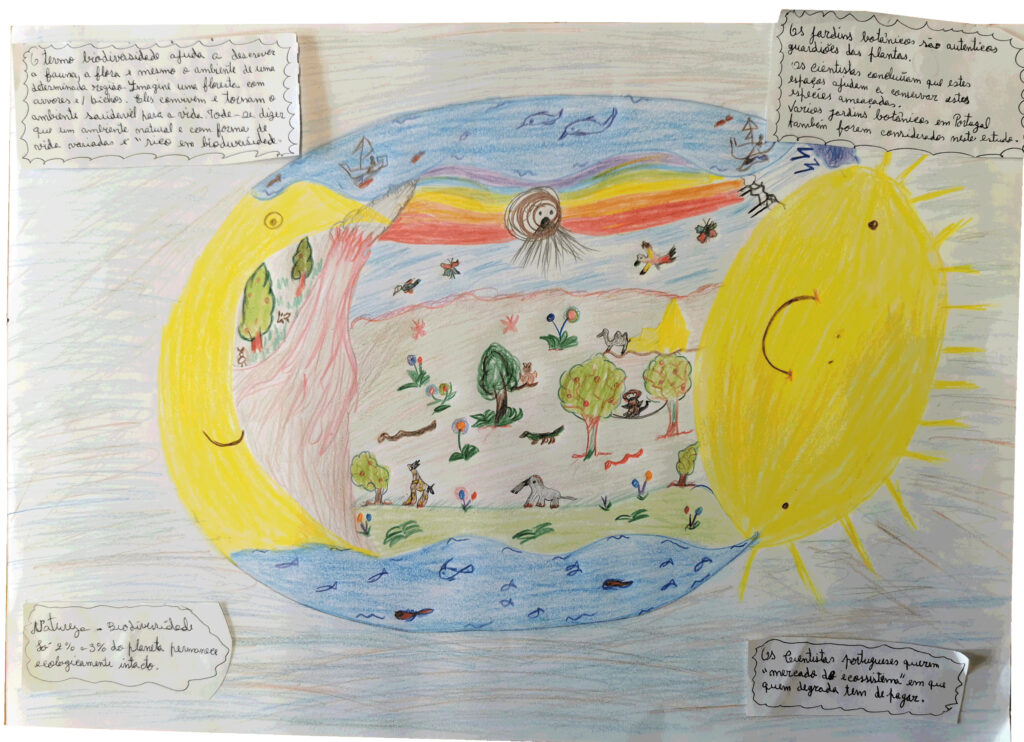 O termo biodiversidade ajuda a descrever
a fauna, a flora e mesmo o ambiente de uma
determinada região. Imagine uma floresta com
arvores e/ bichos. Eles convivem e tornam o
ambiente saudável para a vida. Pode-se dizer
que um ambiente natural e com forma de
vida variada e "rico em biodiversidade.
Os jardins botânicos são autenticos
guardiões das plantas.
Os cientistas concluíram que estes
espaços ajudem a conservar estes
espécies ameaçadas.
Varios jardins botânicos em Portugal
também foram considerados neste estudo.
Natureza - Biodiversidade
Só 2% - 3% do planeta permanece
ecologicamente intacto.
Os Cientistas portugueses querem
"mercado do ecossistema" em que
quem degrada tem de pagar.